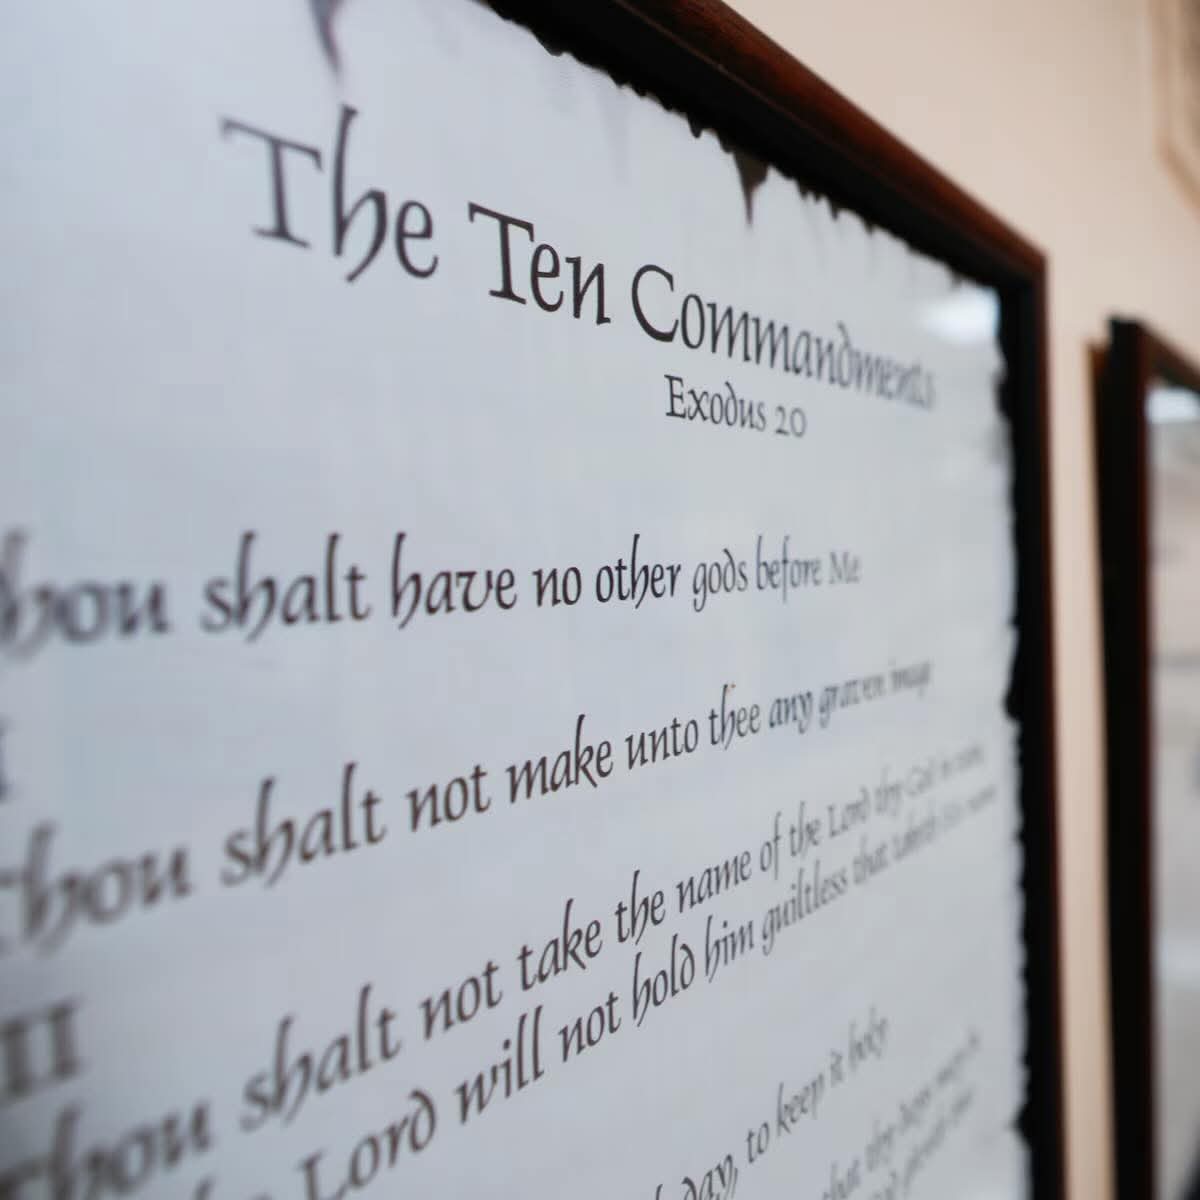 The Ten Commandments
Exodus 20
thou shalt have no other gods before Me
thou shalt not make unto thee any graven image
II
thou shalt not take the name of the Lord thy God in vain
Lord will not hold him guiltless that taketh His name
day, to keep it holy
that thy days